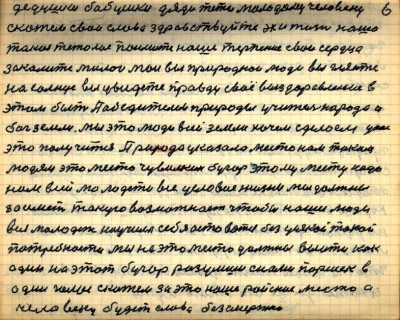 дедушки бабушки дяди тети молодому человеку 6
скажем свои слова здравствуйте эх и жизь наша
такая помните наше терпение свои сердца
закалите милои мои вы природнои люди вы гляньте
на солнце вы увидете правду своё выздаравление в
этом быть Победителем природы учителя народа а
бог земли. мы это люди всеи земли начем сделаем
это получится Природа указала место нам таким
людям это место чувилкин бугор этому месту надо
нам всеи молодежи все целое жизни мы должны
такую возможность чтобы наши люди
вся молодеж научила себя оставатся без всякои такои
потребности мы на это место должны выити как
один на этот бугор разумши сняли в
один голос скажем за это наше раиское место а
человеку будет слава безсмертно